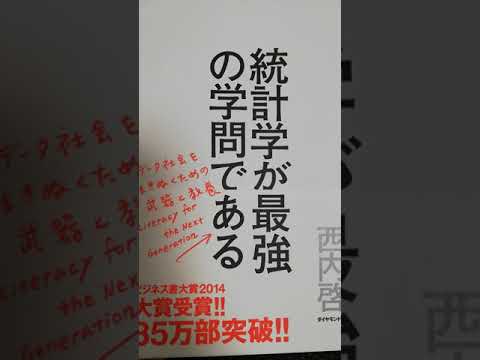 統計学が最強
の学問である
データ社会を
生きぬくための
武器と教養
Literacy for
the Next
Generation
西内啓
ダイヤモンド
ビジネス書大賞2014
大賞受賞!!
5万部突破!!